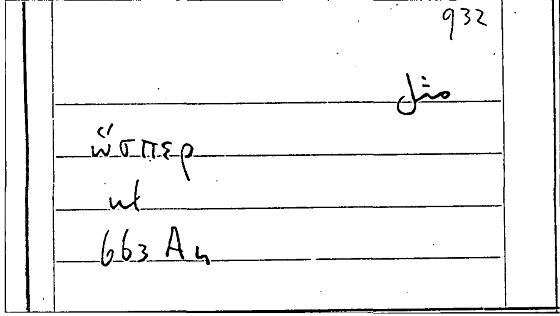 932
مثل
ὥσπερ
ut
663 A 4